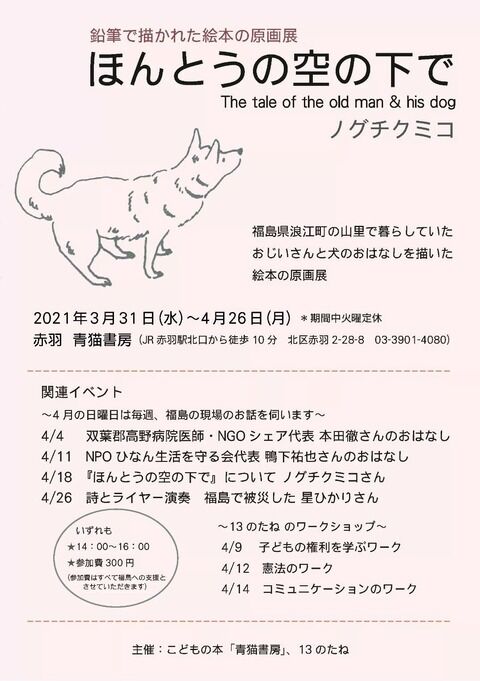 鉛筆で描かれた絵本の原画展
ほんとうの空の下で
The tale of the old man & his dog
ノグチクミコ
福島県浪江町の山里で暮らしていた
おじいさんと犬のおはなしを描いた
絵本の原画展
2021年3月31日(水)～4月26日(月) ＊期間中火曜定休
赤羽 青猫書房(JR赤羽駅北口から徒歩10分 北区赤羽2-28-8 03-3901-4080)
関連イベント
～4月の日曜日は毎週、福島の現場のお話を伺います～
4/4 双葉郡高野病院医師・NGOシェア代表 本田徹さんのおはなし
4/11 NPOひなん生活を守る会代表 鴨下祐也さんのおはなし
4/18 『ほんとうの空の下で』について ノグチクミコさん
4/26 詩とライヤー演奏 福島で被災した 星ひかりさん
いずれも
★14：00～16：00
★参加費300円
(参加費はすべて福島への支援と
させていただきます)
～13のたね のワークショップ～
4/9 子どもの権利を学ぶワーク
4/12 憲法のワーク
4/14 コミュニケーションのワーク
主催：こどもの本「青猫書房」、13のたね